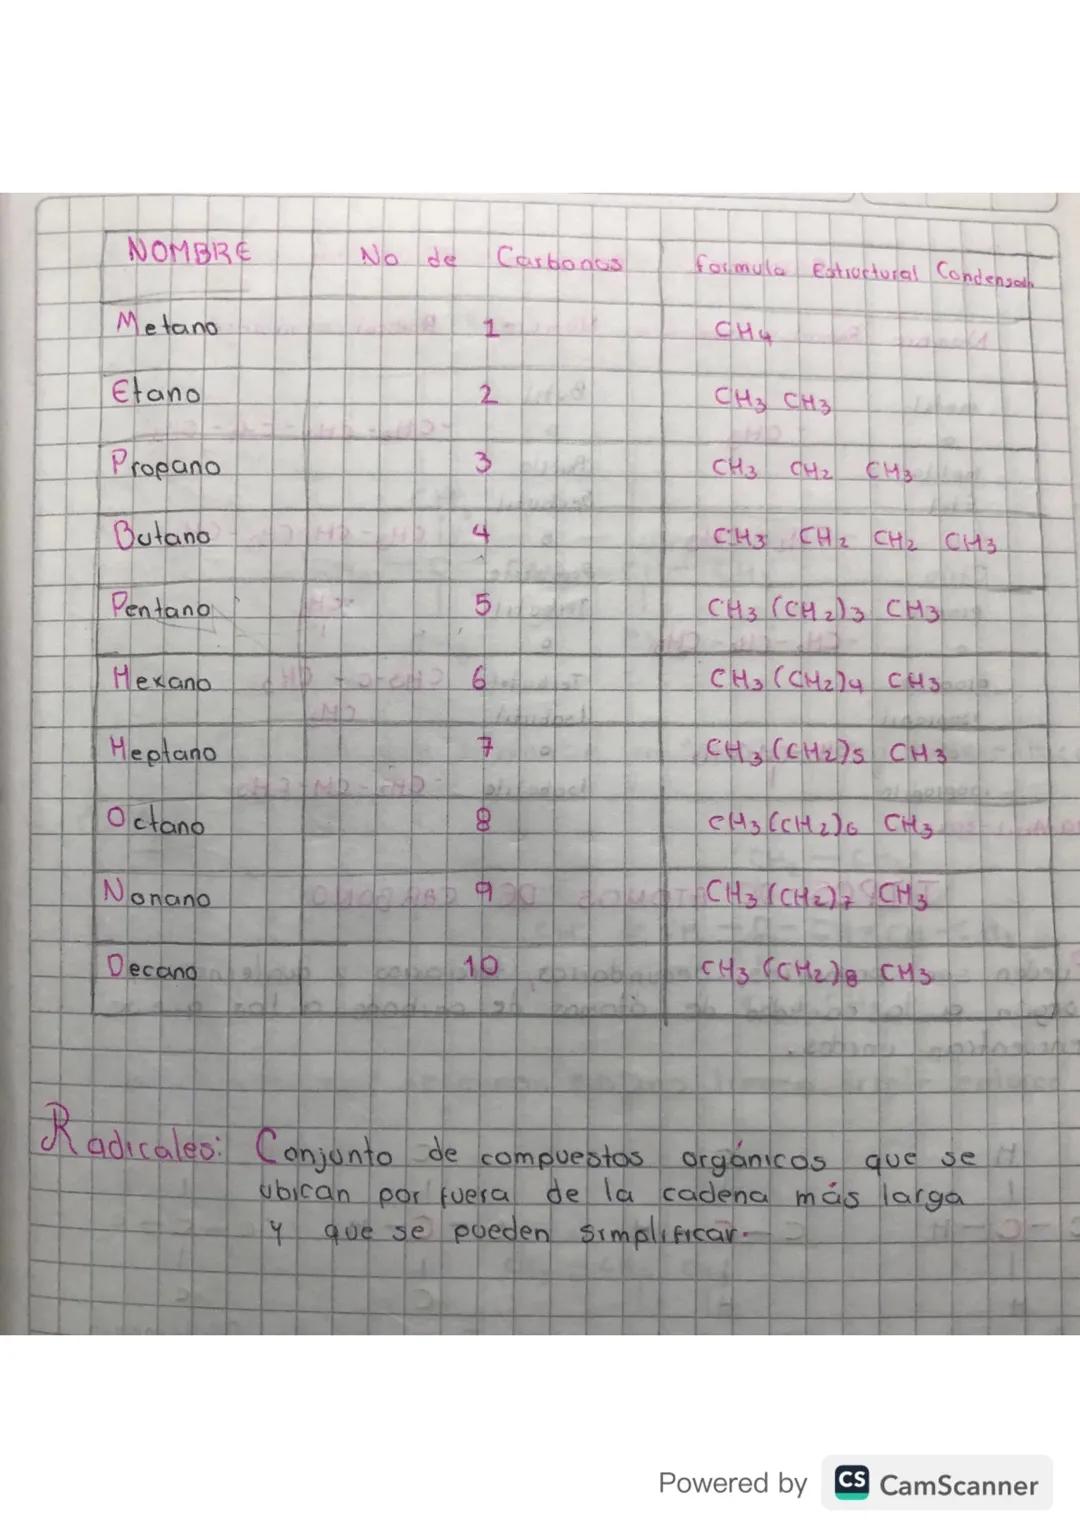 NOMBRE No de Carbonos formula Estructural Condensada
Metano 1 CH4
Etano 2 CH3 CH3
Propano 3 CH3 CH2 CH3
Butano 4 CH3 CH2 CH2 CH3
Pentano 5 CH3 (CH2)3 CH3
Hexano 6 CH3 (CH2)4 CH3
Heptano 7 CH3 (CH2)5 CH3
Octano 8 CH3 (CH2)6 CH3
Nonano 9 CH3 (CH2)7 CH3
Decano 10 CH3 (CH2)8 CH3
Radicales: Conjunto de compuestos orgánicos que se
ubican por fuera de la cadena más larga
y que se pueden simplificar.
Powered by CS CamScanner